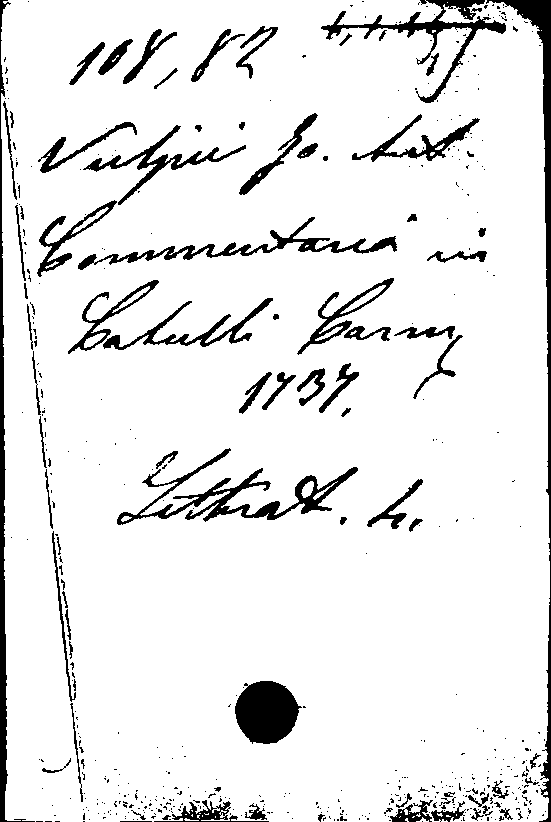 108,82
Vulpii Jo. Ant.
Commentaria in
Catulli Carm.
1737.
Litterat. L.